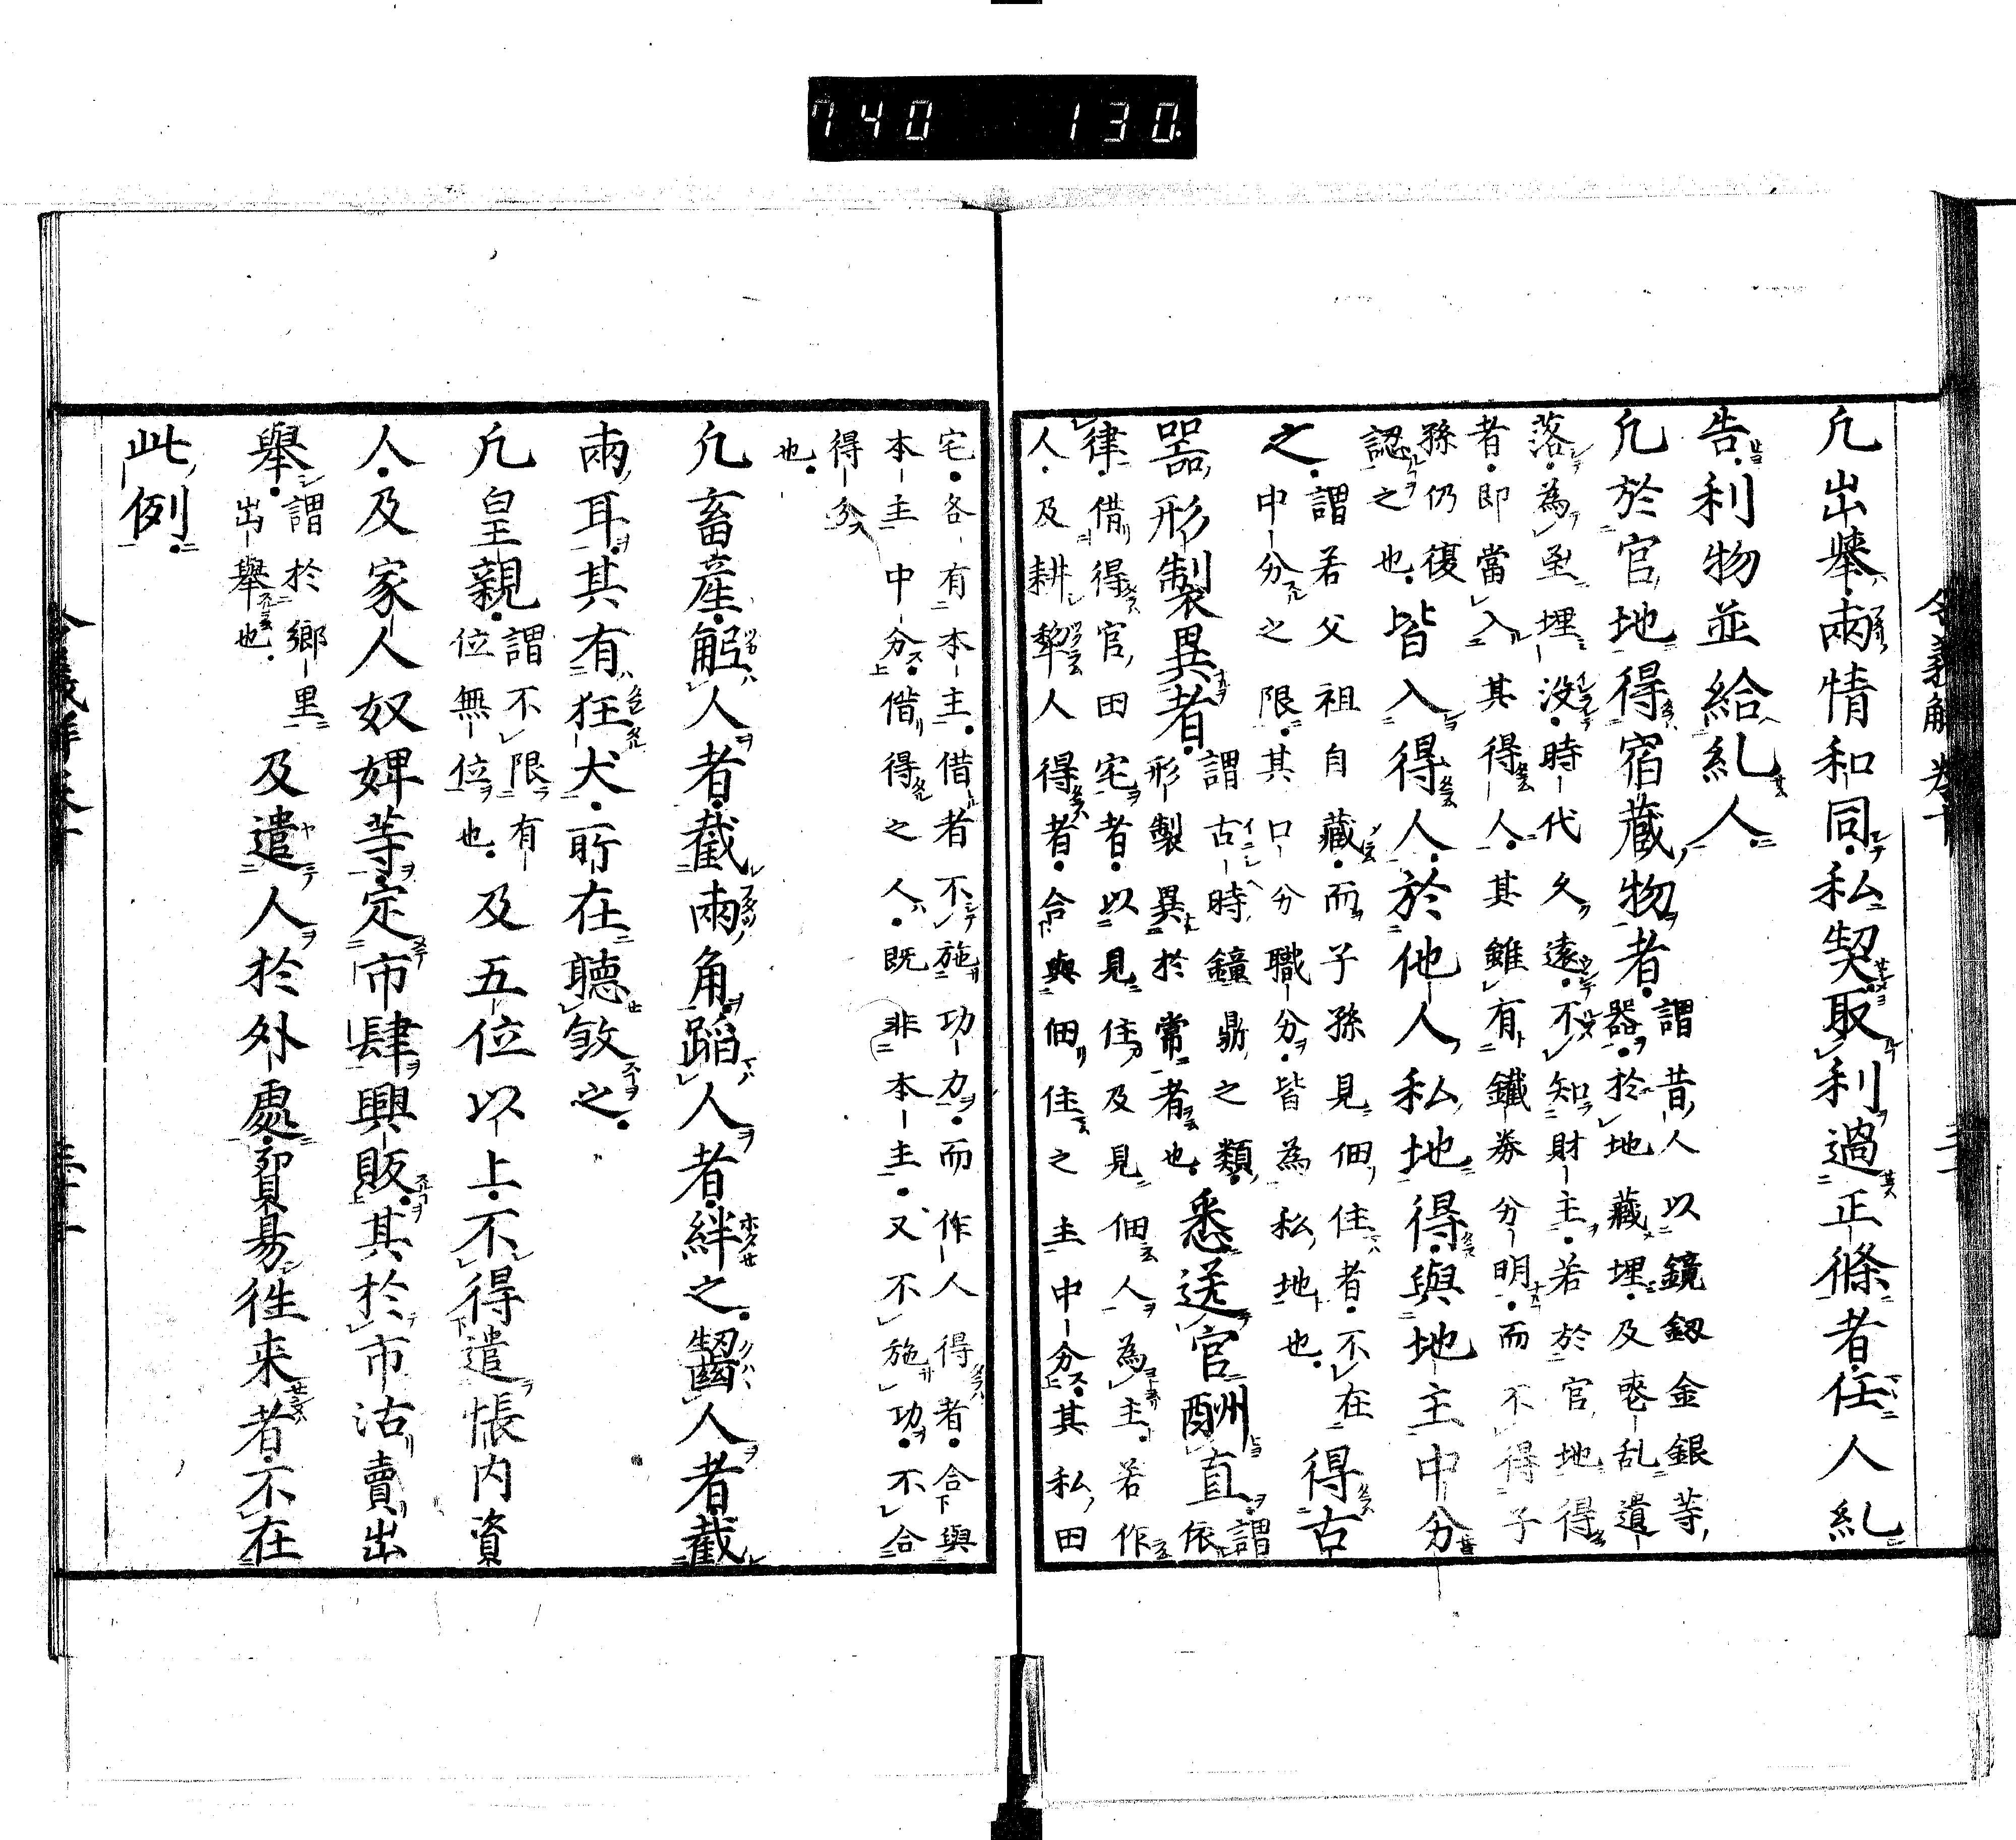 740 130.
凢出擧兩情和同私契取利過正條者任人糺
告利物並給糺人
凢於官地得宿藏物者
謂昔人以鏡釼金銀等
器於地藏埋及喪乱遺
落為至埋没時代久遠不知財主若於官地得
者即當入其得人其雖有鐵券分明而不得子
孫仍復
認之也
皆入得人於他人私地得與地主中分
之
謂若父祖自藏而子孫見佃住者不在
中分之限其口分職分皆為私地也
得古
器形製異者
謂古時鐘鼎之類
形製異於常者也
悉送官酬直
謂
依
律借得官田宅者以見住及見佃人為主若作
人及耕犂人得者合與佃住之主中分其私田
宅各有本主借者不施功力而作人得者合與
本主中分借得之人既非本主又不施功不合
得分
也
凢畜産觝人者截兩角蹈人者絆之齧人者截
兩耳其有狂犬所在聽煞之
凢皇親
謂不限有
位無位也
及五位以上不得遣帳内資
人及家人奴婢等定市肆興販其於市沽賣出
擧
謂於鄉里
出擧也
及遣人於外處貿易往来者不在
此例